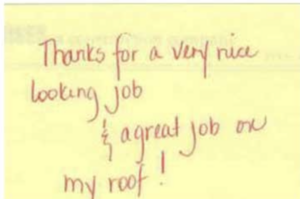 Thanks for a very nice
looking job
& a great job on
my roof!